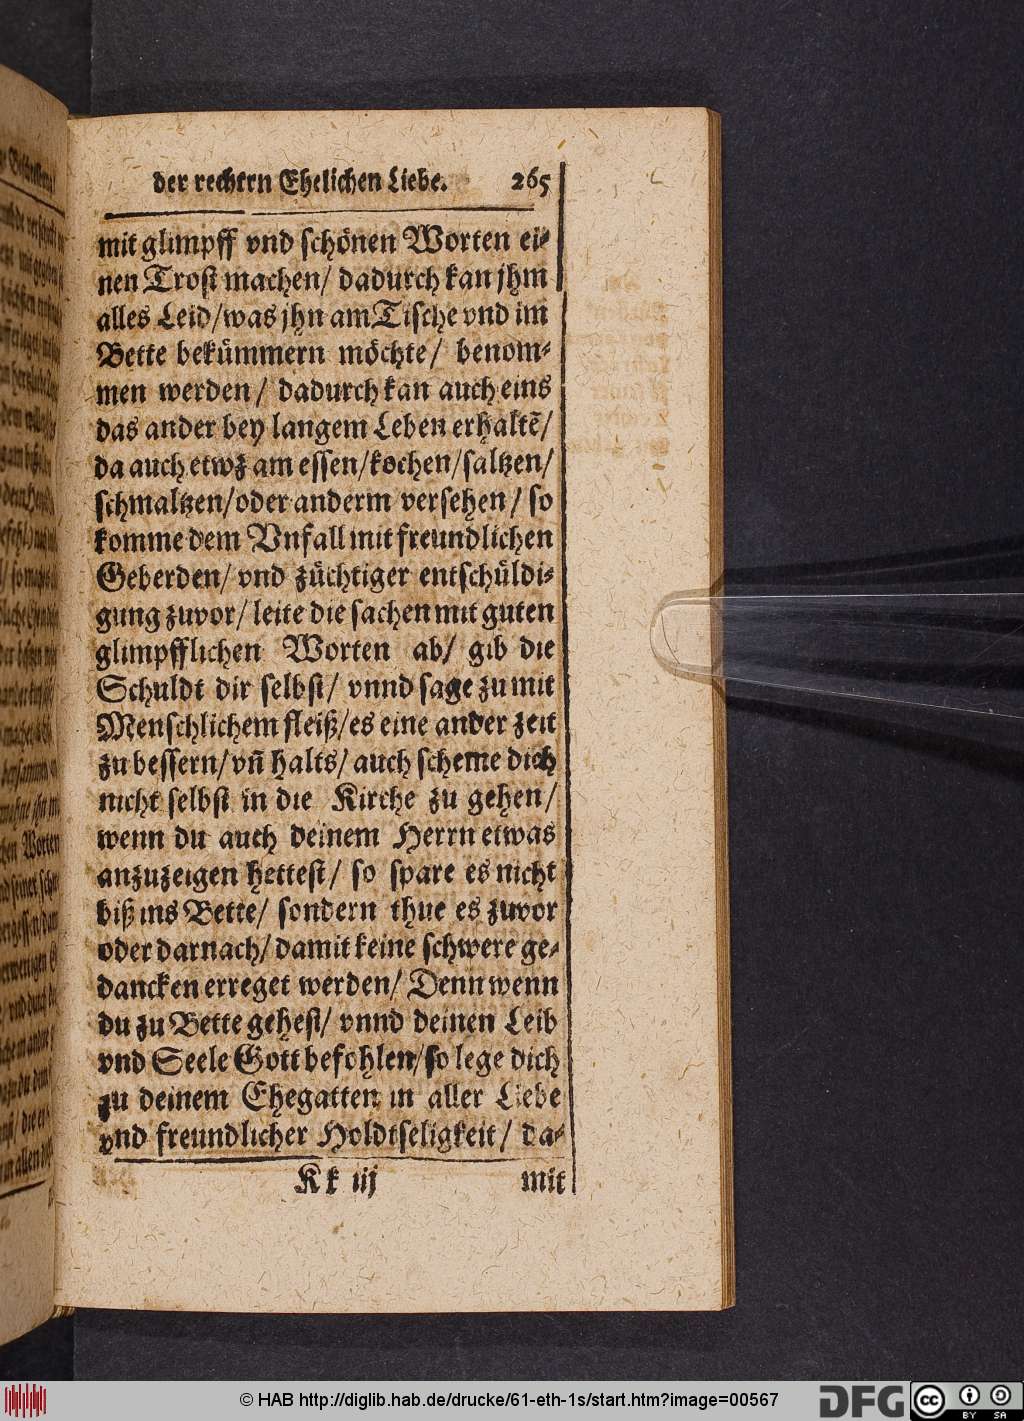 der rechten Ehelichen Liebe. 265
mit glimpff vnd schönen Worten ei-
nen Trost machen/ dadurch kan jhm
alles Leid/was jhn am Tische vnd im
Bette bekümmern möchte/ benom-
men werden/ dadurch kan auch eins
das ander bey langem Leben erhaltẽ/
da auch etwz am essen/kochen/saltzen/
schmaltzen/oder anderm versehen/ so
komme dem Vnfall mit freundlichen
Geberden/ vnd züchtiger entschüldi-
gung zuvor/ leite die sachen mit guten
glimpfflichen Worten ab/ gib die
Schuldt dir selbst/ vnnd sage zu mit
Menschlichem fleiß/es eine ander zeit
zu bessern/vñ halts/ auch scheme dich
nicht selbst in die Kirche zu gehen/
wenn du auch deinem Herrn etwas
anzuzeigen hettest/ so spare es nicht
biß ins Bette/ sondern thue es zuvor
oder darnach/ damit keine schwere ge-
dancken erreget werden/ Denn wenn
du zu Bette gehest/ vnnd deinen Leib
vnd Seele Gott befohlen/so lege dich
zu deinem Ehegatten in aller Liebe
vnd freundlicher Holdtseligkeit/ da-
Kk iij mit
© HAB http://diglib.hab.de/drucke/61-eth-1s/start.htm?image=00567
DFG cc BY SA